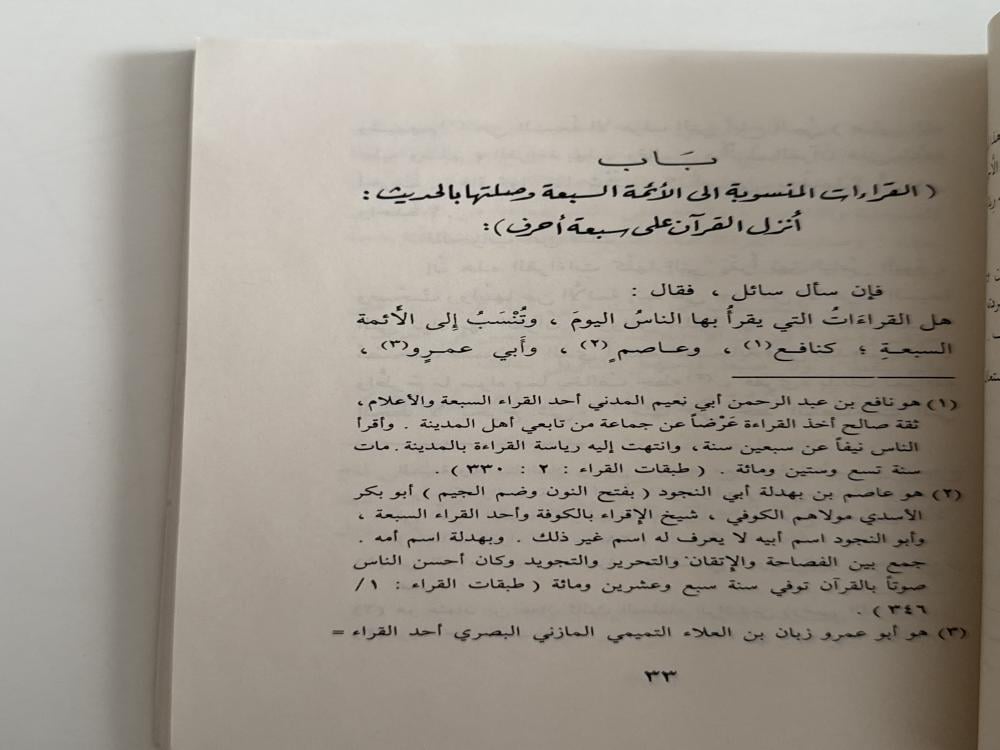 بَـاب
( القراءات المنسوبة الى الأئمة السبعة وصلتها بالحديث :
أنزل القرآن على سبعة أحرف ) :
فإن سأل سائل ، فقال :
هل القراءَاتُ التي يقرأُ بها الناسُ اليومَ ، وتُنْسَبُ إِلى الأَئمة
السبعةِ ؛ كنافـع(١) ، وعـاصمٍ(٢) ، وأَبي عمـرٍو(٣) ،
(١) هو نافع بن عبد الرحمن أبي نعيم المدني أحد القراء السبعة والأعلام ،
ثقة صالح أخذ القراءة عَرْضاً عن جماعة من تابعي أهل المدينة . وأقرأ
الناس نيفاً عن سبعين سنة ، وانتهت إليه رياسة القراءة بالمدينة . مات
سنة تسع وستين ومائة . ( طبقات القراء : ٢ : ٣٣٠ ) .
(٢) هو عاصم بن بهدلة أبي النجود ( بفتح النون وضم الجيم ) أبو بكر
الأسدي مولاهم الكوفي ، شيخ الإقراء بالكوفة وأحد القراء السبعة ،
وأبو النجود اسم أبيه لا يعرف له اسم غير ذلك . وبهدلة اسم أمه .
جمع بين الفصاحة والإتقان والتحرير والتجويد وكان أحسن الناس
صوتاً بالقرآن توفي سنة سبع وعشرين ومائة ( طبقات القراء : ١ /
٣٤٦ ) .
(٣) هو أبو عمرو زبان بن العلاء التميمي المازني البصري أحد القراء =
٣٣